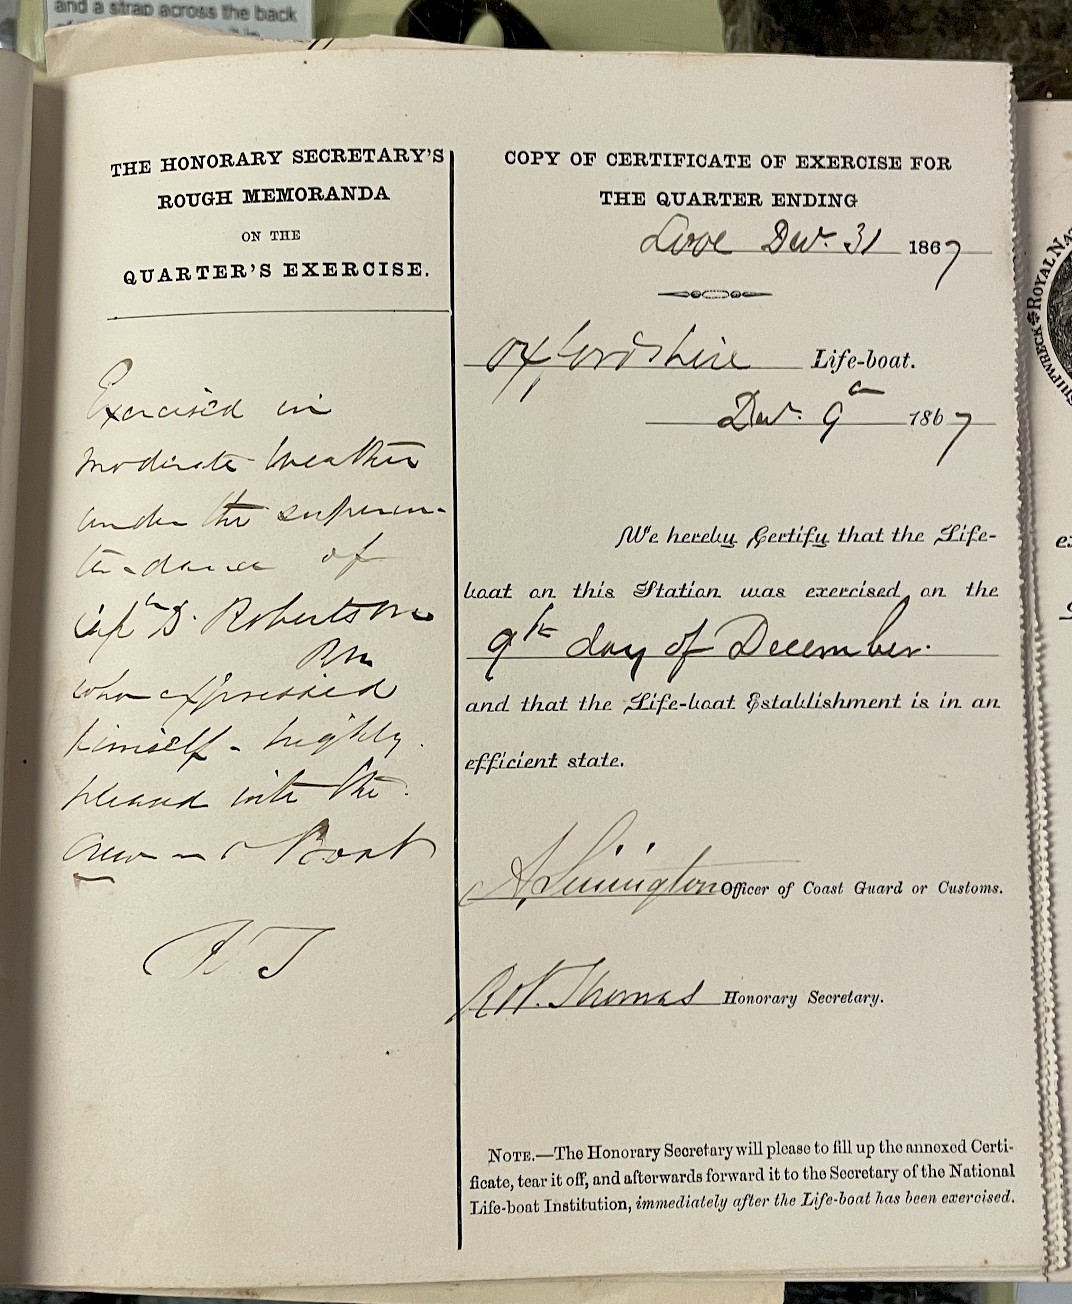 and a strap across the back
THE HONORARY SECRETARY'S
ROUGH MEMORANDA
ON THE
QUARTER'S EXERCISE.
Exercised in
moderate weather
under the superin-
tendance of
Capn D. Robertson
RN
who expressed
himself - highly
pleased with the
crew and Boat
COPY OF CERTIFICATE OF EXERCISE FOR
THE QUARTER ENDING
Looe Decr. 31 1867
Oxfordshire Life-boat.
Decr. 9th 1867
We hereby Certify that the Life-
boat on this Station was exercised on the
9th day of December.
and that the Life-boat Establishment is in an
efficient state.
Officer of Coast Guard or Customs.
Thomas Honorary Secretary.
NOTE.—The Honorary Secretary will please to fill up the annexed Certi-
ficate, tear it off, and afterwards forward it to the Secretary of the National
Life-boat Institution, immediately after the Life-boat has been exercised.
SHIPWRECK ROYAL NAT